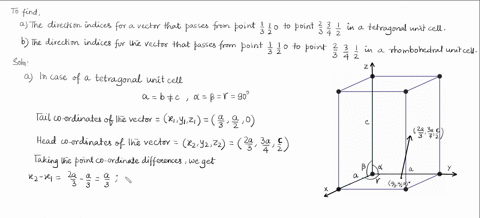 To find,
a) The direction indices for a vector that passes from point 1/3 1/2 0 to point 2/3 3/4 1/2 in a tetragonal unit cell.
b) The direction indices for the vector that passes from point 1/3 1/2 0 to point 2/3 3/4 1/2 in a rhombohedral unit cell.
Soln:
a) In case of a tetragonal unit cell
a = b ≠ c , α = β = γ = 90°
Tail co-ordinates of the vector = (x₁, y₁, z₁) = (a/3, a/2, 0)
Head co-ordinates of the vector = (x₂, y₂, z₂) = (2a/3, 3a/4, c/2)
Taking the point co-ordinate differences, we get
x₂ - x₁ = 2a/3 - a/3 = a/3 ;
z
c
(2a/3, 3a/4, c/2)
β α
a
y
γ
a
x